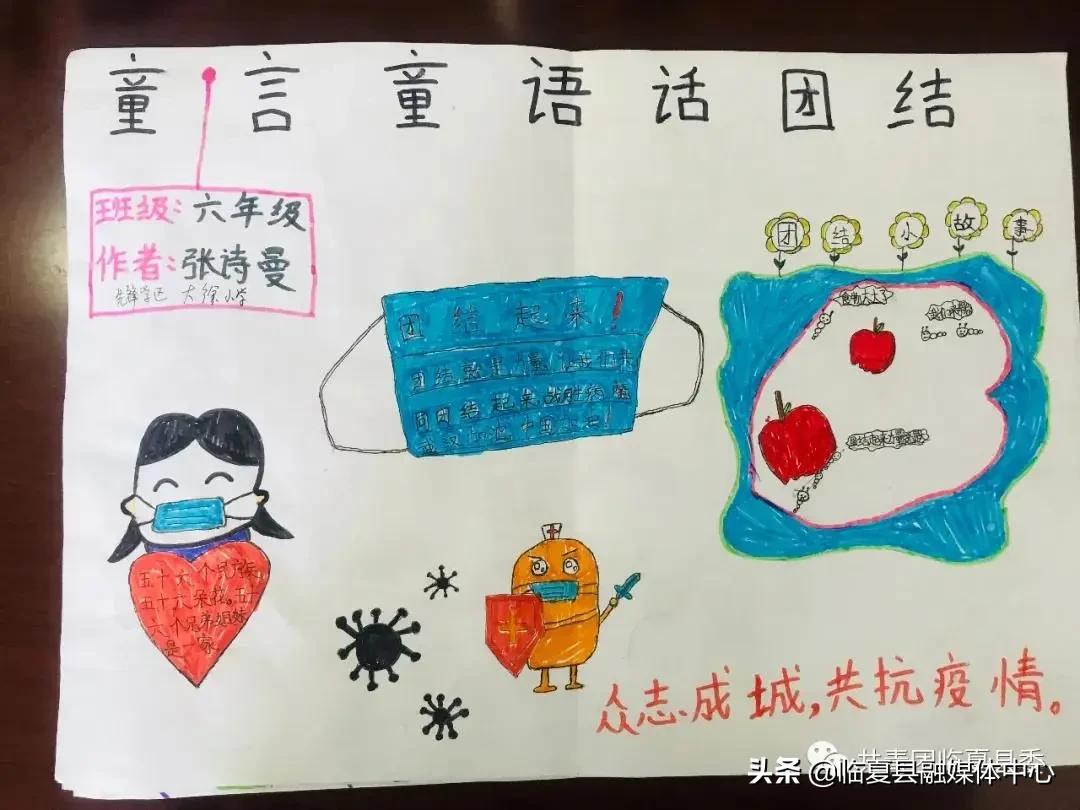 童言童语话团结
班级:六年级
作者:张诗曼
先锋学区 大徐小学
团结小故事
团结起来!
团结就是力量,让我们共
同团结起来战胜病毒
武汉加油 中国加油!
食物太大了
五十六个兄弟
五十六朵花。五十
六个兄弟姐妹
是一家
众志成城,共抗疫情。
共青团临夏县委
头条 @临夏县融媒体中心